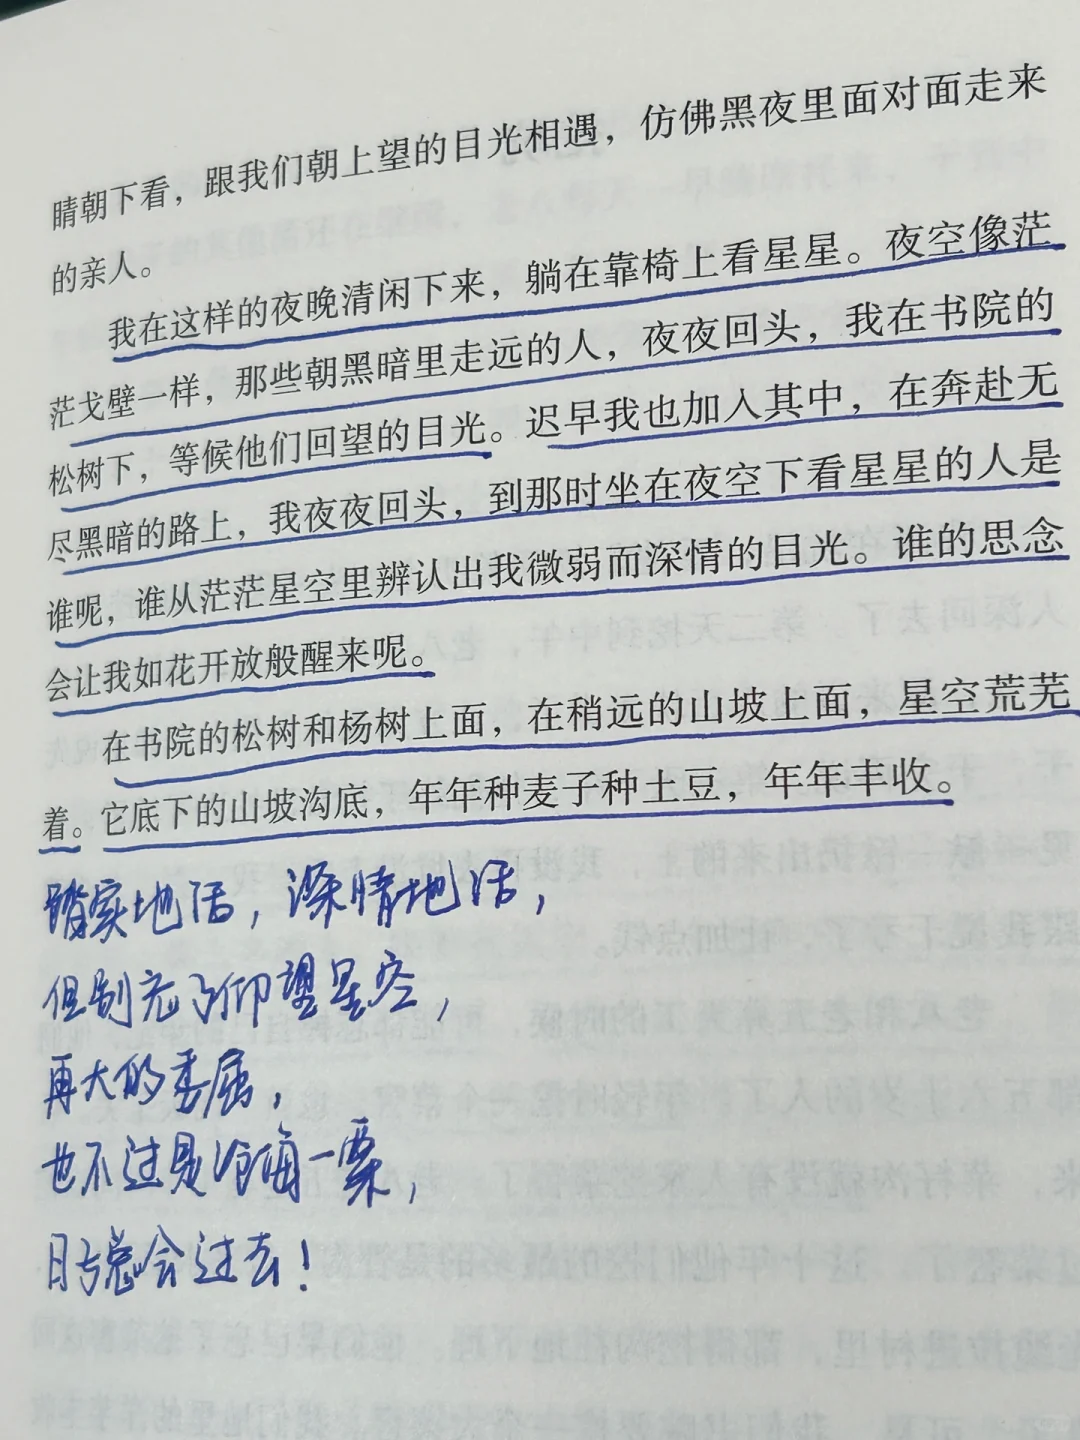 睛朝下看，跟我们朝上望的目光相遇，仿佛黑夜里面对面走来
的亲人。
我在这样的夜晚清闲下来，躺在靠椅上看星星。夜空像茫
茫戈壁一样，那些朝黑暗里走远的人，夜夜回头，我在书院的
松树下，等候他们回望的目光。迟早我也加入其中，在奔赴无
尽黑暗的路上，我夜夜回头，到那时坐在夜空下看星星的人是
谁呢，谁从茫茫星空里辨认出我微弱而深情的目光。谁的思念
会让我如花开放般醒来呢。
在书院的松树和杨树上面，在稍远的山坡上面，星空荒芜
着。它底下的山坡沟底，年年种麦子种土豆，年年丰收。
踏实地活，深情地活，
但别忘了仰望星空，
再大的委屈，
也不过是沧海一粟，
日子总会过去！